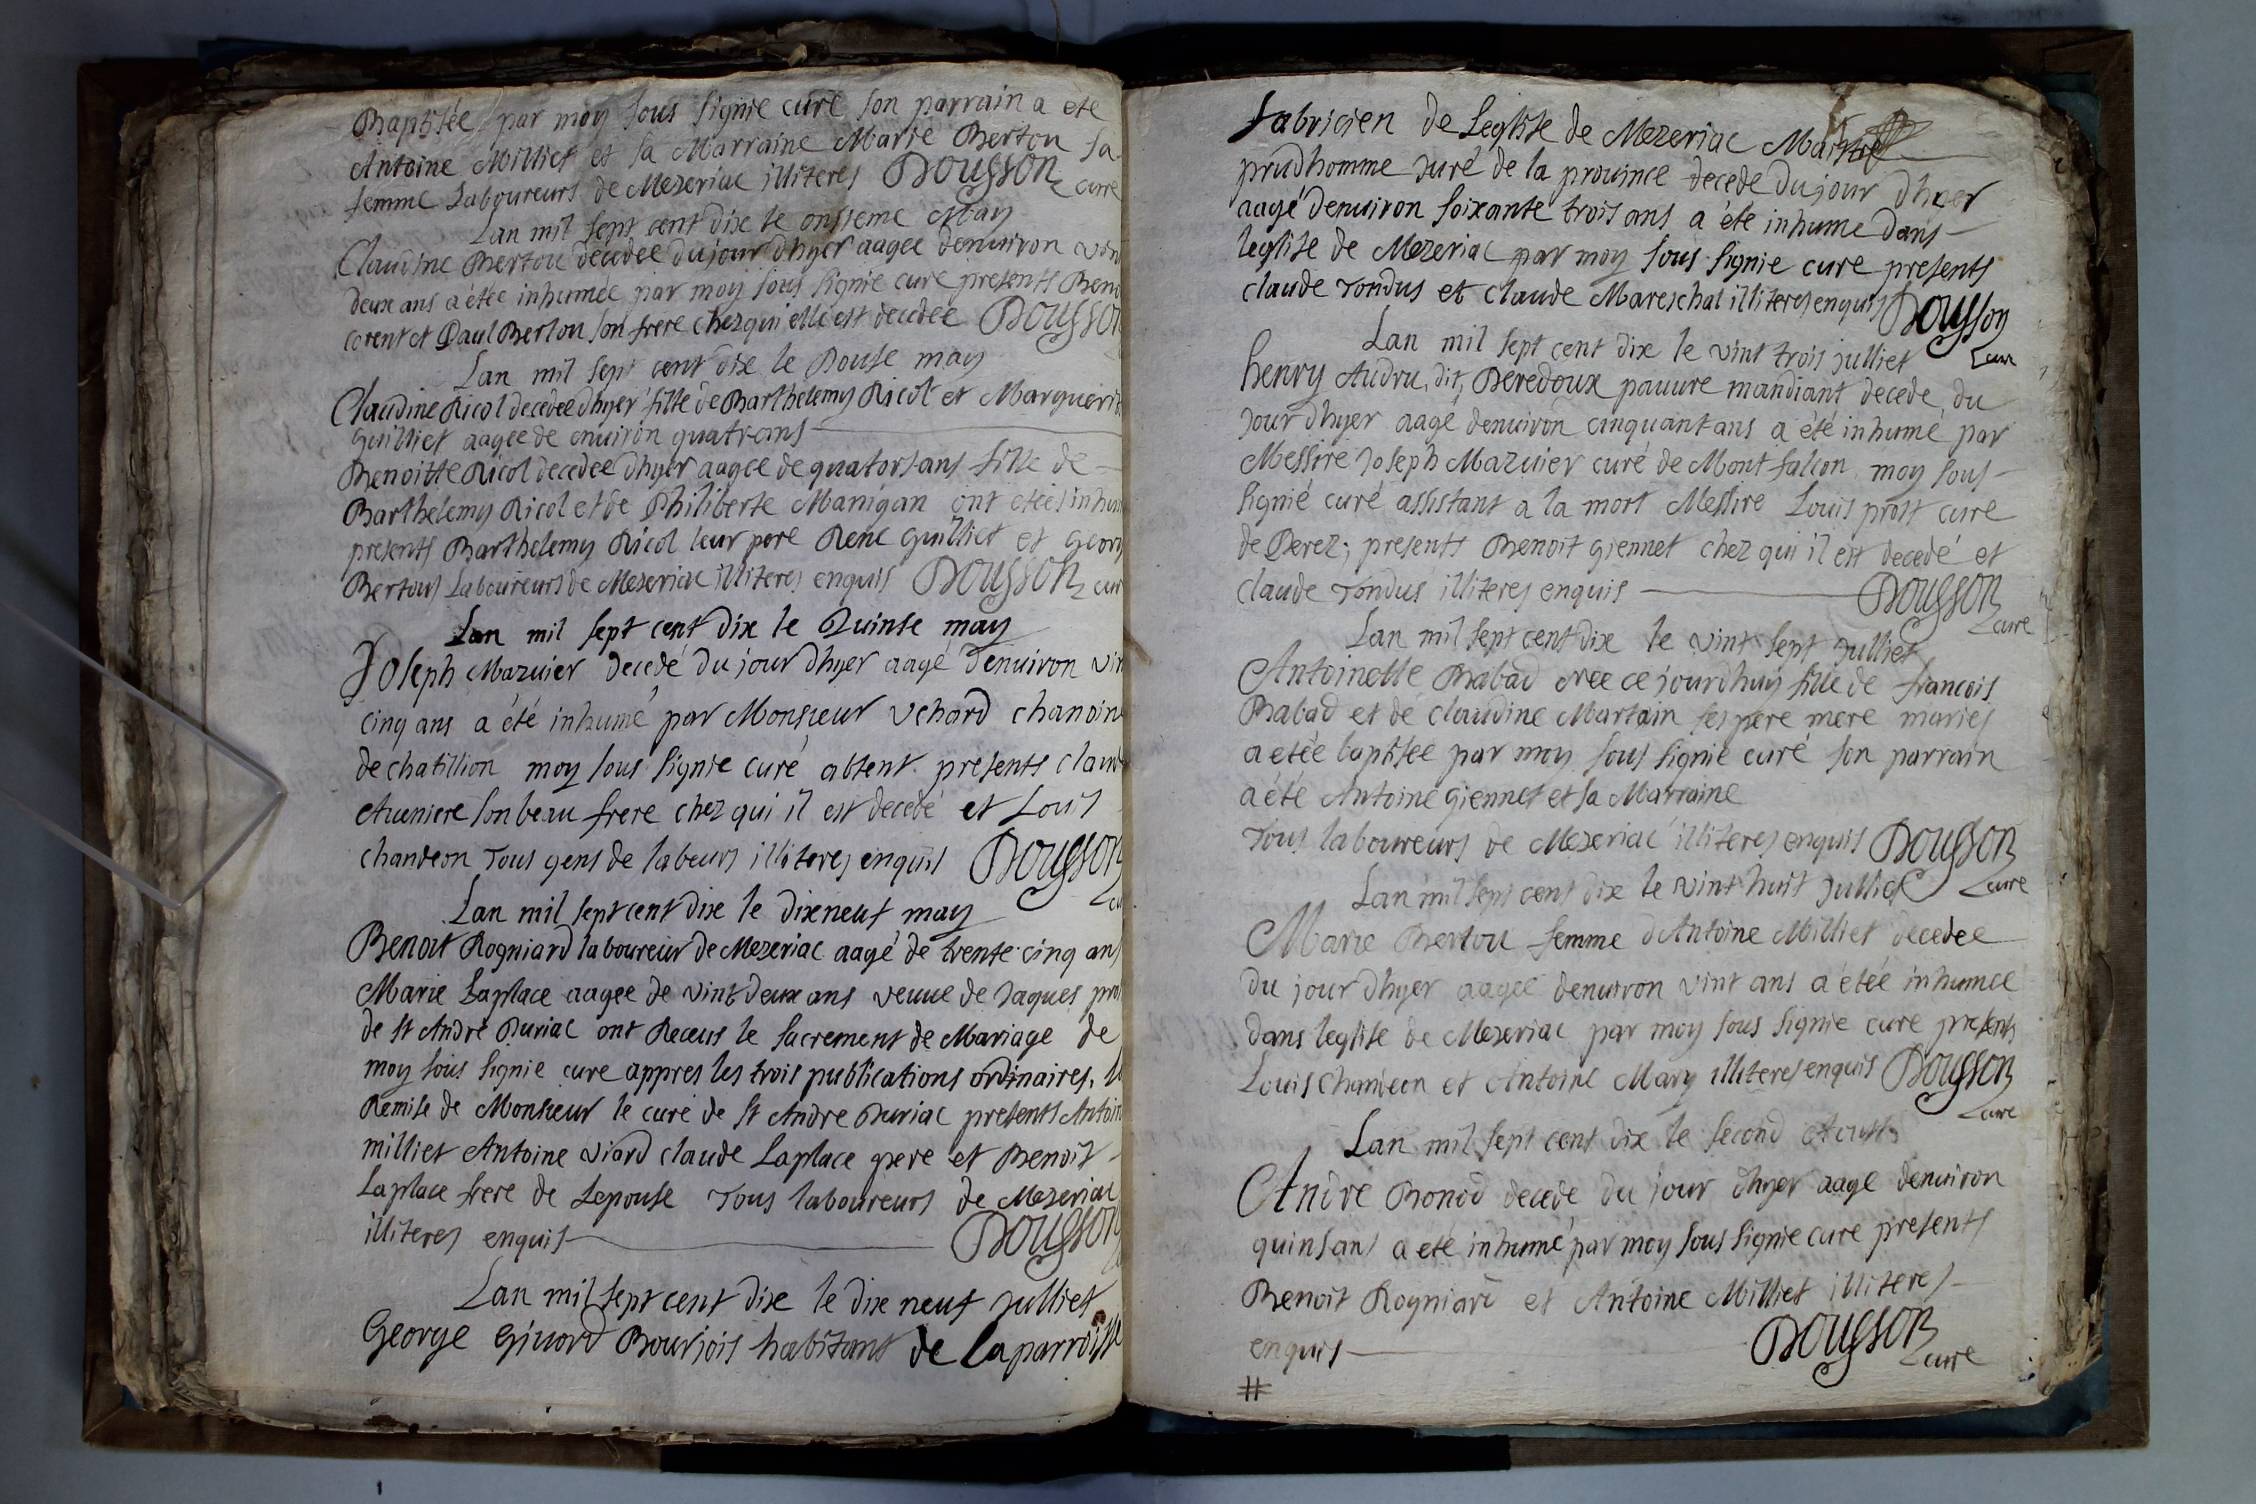 Baptisée par moy sous signie curé son parrain a eté
Antoine Milliet et sa Marraine Marie Bertou sa
femme Laboureurs de Mezeriac illiteres Dousson curé
Lan mil sept cent dix le onsieme May
Claudine Bertou decedee du jour dhyer aagee denuiron vint
deux ans a étée inhumée par moy sous signie curé presents Beno
corent et Paul Bertou son frere chez qui elle est decedée Dousson
Lan mil sept cent dix le Douse may
Claudine Ricol decedee dhyer fille de Barthelemy Ricol et Marguerit
Guilliet aagee de enuiron quatre ans
Benoitte Ricol decedee dhyer aagee de quators ans fille de
Barthelemy Ricol et de Philiberte Manigan ont etées inhum
presents Barthelemy Ricol leur pere René Guilliet et Georg
Bertous Laboureurs de Mezeriac illiteres enquis Dousson cur
Lan mil sept cent dix le Quinse may
Joseph Mazuier decedé du jour dhyer aagé denuiron vin
cinq ans a été inhumé par Monsieur vchard chanoin
de chatillion moy sous signie curé absent presents claud
Aueniere son beau frere chez qui il est decedé et Louis
chandeon Tous gens de labeurs illiteres enquis Dousson
Lan mil sept cent dix le dixneuf may
Benoit Rogniard laboureur de Mezeriac aagé de trente cinq ans
Marie Laplace aagee de vint deux ans veuue de Jaques pro
de st André Duriac ont Receus le sacrement de Mariage de
moy sous signie cure appres les trois publications ordinaires, l
Remise de Monsieur le curé de st Andre Duriac presents Antoin
milliet Antoine viard claude Laplace pere et Benoit
Laplace frere de Lepouse Tous laboureurs de Mezeriac
illiteres enquis Dousson
Lan mil sept cent dix le dix neuf Julliet
George Giuord Bourjois habitant de la parroisse
fabricien de Leglise de Mezeriac
prudhomme Juré de la prouince decede du jour dhyer
aagé denuiron soixante trois ans a été inhume dans
leglise de Mezeriac par moy sous signie cure presents
claude Tondus et claude Mareschal illiteres enquis Dousson
Lan mil sept cent dix le vint trois julliet cur
henry Audru, dit, Beredoux pauure mandiant decede du
jour dhyer aagé denuiron cinquant ans a été inhumé par
Messire Joseph Mazuier curé de Montfalcon moy sous
signié curé assistant a la mort Messire Louis prost cure
de Perez; presents Benoit giennet chez qui il est decedé et
claude Tondus illiteres enquis Dousson
Lan mil sept cent dix le vint sept Julliet cure
Antoinette Babad nee ce jourdhuy fille de francois
Babad et de claudine Martain ses pere mere maries
a etée baptisée par moy sous signié curé son parrain
a été Antoine giennet et sa Marraine
Tous laboureurs de Mezeriac illiteres enquis Dousson
Lan mil sept cent dix le vint huit Julliet cure
Marie Bertou femme dAntoine Milliet decedee
du jour dhyer aagee denuiron vint ans a étée inhumee
dans leglise de Mezeriac par moy sous signie cure presents
Louis chandeon et Antoine Mary illiteres enquis Dousson
cure
Lan mil sept cent dix le second Aoust
Andre Bonod decede du jour dhyer aage denuiron
quins ans a eté inhumé par moy sous signie cure presents
Benoit Rogniard et Antoine Milliet illiteres
enquis Dousson
cure